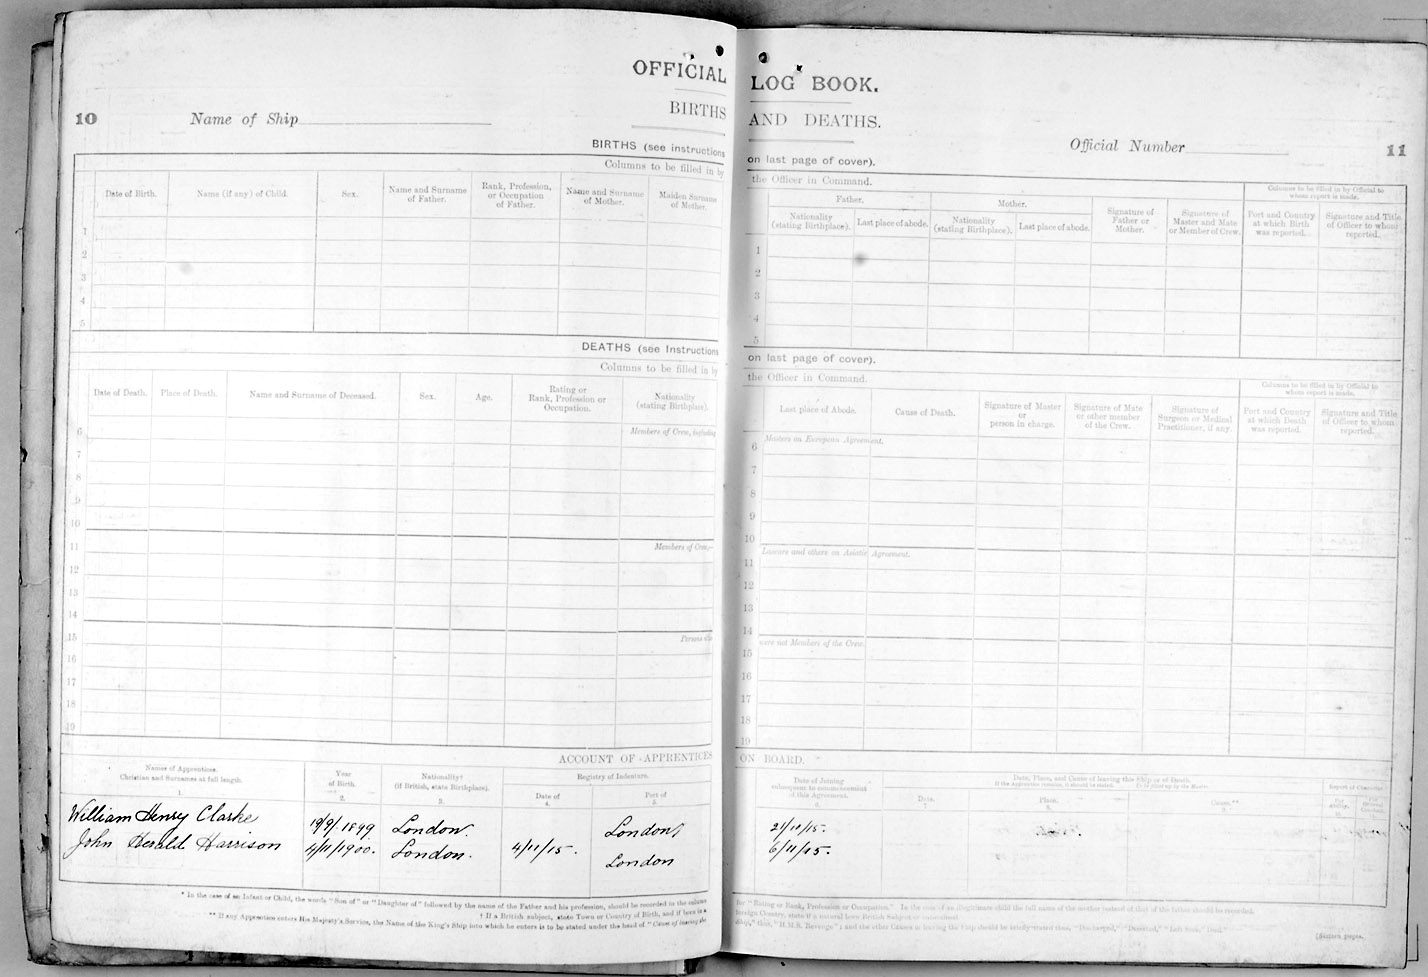 OFFICIAL LOG BOOK.
BIRTHS AND DEATHS.
10
Name of Ship
Official Number
11
BIRTHS (see instructions on last page of cover).
Columns to be filled in by the Officer in Command.
Columns to be filled in by Official to whom report is made.
Date of Birth.
Name (if any) of Child.
Sex.
Name and Surname of Father.
Rank, Profession, or Occupation of Father.
Name and Surname of Mother.
Maiden Surname of Mother.
Father.
Nationality (stating Birthplace).
Last place of abode.
Mother.
Nationality (stating Birthplace).
Last place of abode.
Signature of Father or Mother.
Signature of Master and Mate or Member of Crew.
Port and Country at which Birth was reported.
Signature and Title of Officer to whom reported.
1 1
2 2
3 3
4 4
5 5
DEATHS (see Instructions on last page of cover).
Columns to be filled in by the Officer in Command.
Columns to be filled in by Official to whom report is made.
Date of Death.
Place of Death.
Name and Surname of Deceased.
Sex.
Age.
Rating or Rank, Profession or Occupation.
Nationality (stating Birthplace).
Last place of Abode.
Cause of Death.
Signature of Master or person in charge.
Signature of Mate or other member of the Crew.
Signature of Surgeon or Medical Practitioner, if any.
Port and Country at which Death was reported.
Signature and Title of Officer to whom reported.
Members of Crew, including Masters on European Agreement.
6 6
7 7
8 8
9 9
10 10
Members of Crew,— Lascars and others on Asiatic Agreement.
11 11
12 12
13 13
14 14
Persons who were not Members of the Crew.
15 15
16 16
17 17
18 18
19 19
ACCOUNT OF APPRENTICES ON BOARD.
Names of Apprentices.
Christian and Surnames at full length.
1.
Year of Birth.
2.
Nationality†
(if British, state Birthplace).
3.
Registry of Indenture.
Date of
4.
Port of
5.
Date of Joining subsequent to commencement of this Agreement.
6.
Date, Place, and Cause of leaving this Ship or of Death.
Date.
7.
Place.
8.
Cause.**
9.
Report of Character
William Henry Clarke 19/9/1899 London. London 21/10/15.
John Herald Harrison 4/11/1900. London. 4/11/15. London 6/11/15.
* In the case of an Infant or Child, the words "Son of" or "Daughter of" followed by the name of the Father and his profession, should be recorded in the column for "Rating or Rank, Profession or Occupation." In the case of an illegitimate child the full name of the mother instead of that of the father should be recorded.
† If a British subject, state Town or Country of Birth, and if born in a foreign Country, state if a natural born British Subject or naturalised.
** If any Apprentice enters His Majesty's Service, the Name of the King's Ship into which he enters is to be stated under the head of "Cause of leaving the Ship," thus, "H.M.S. Revenge"; and the other Causes in leaving the Ship should be briefly stated thus, "Discharged," "Deserted," "Left Sick," "Died."